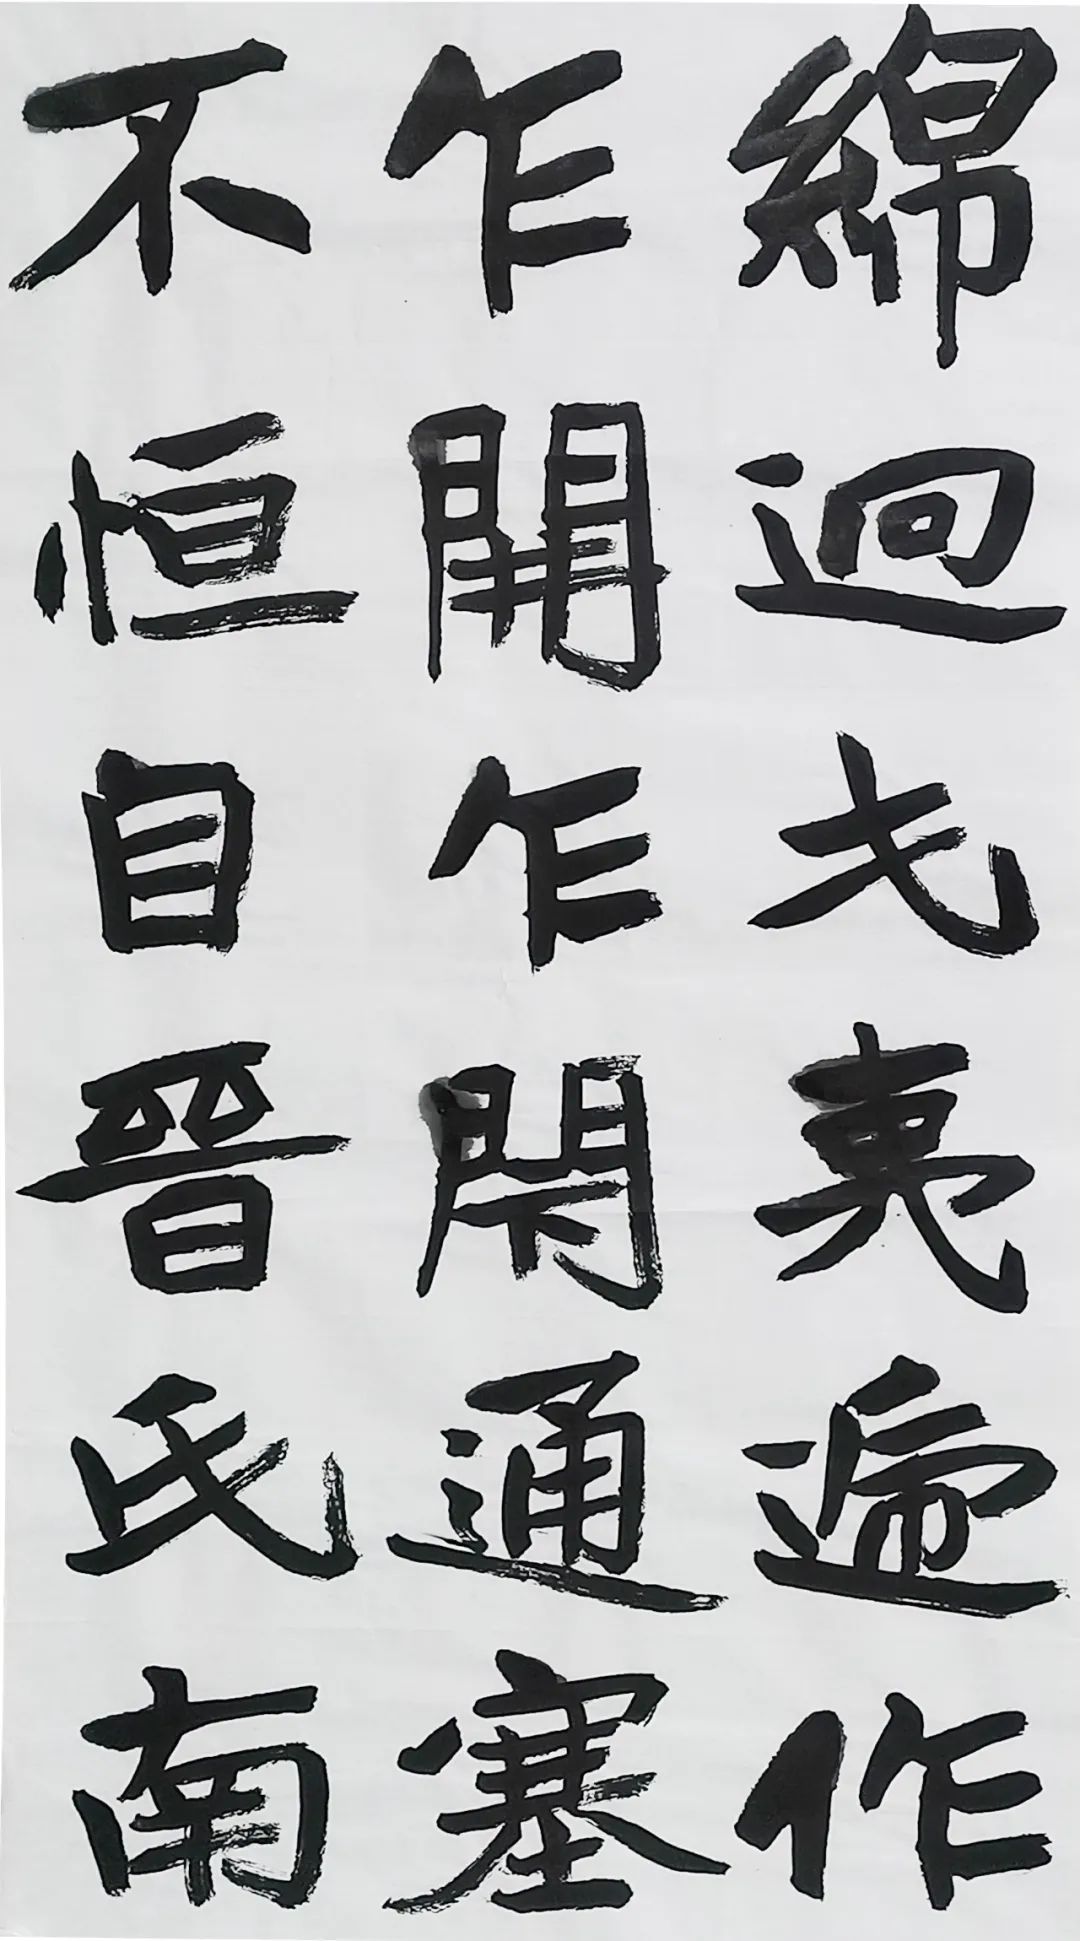 綿迴戎夷遞作
乍開乍閉通塞
不恒自晉氏南